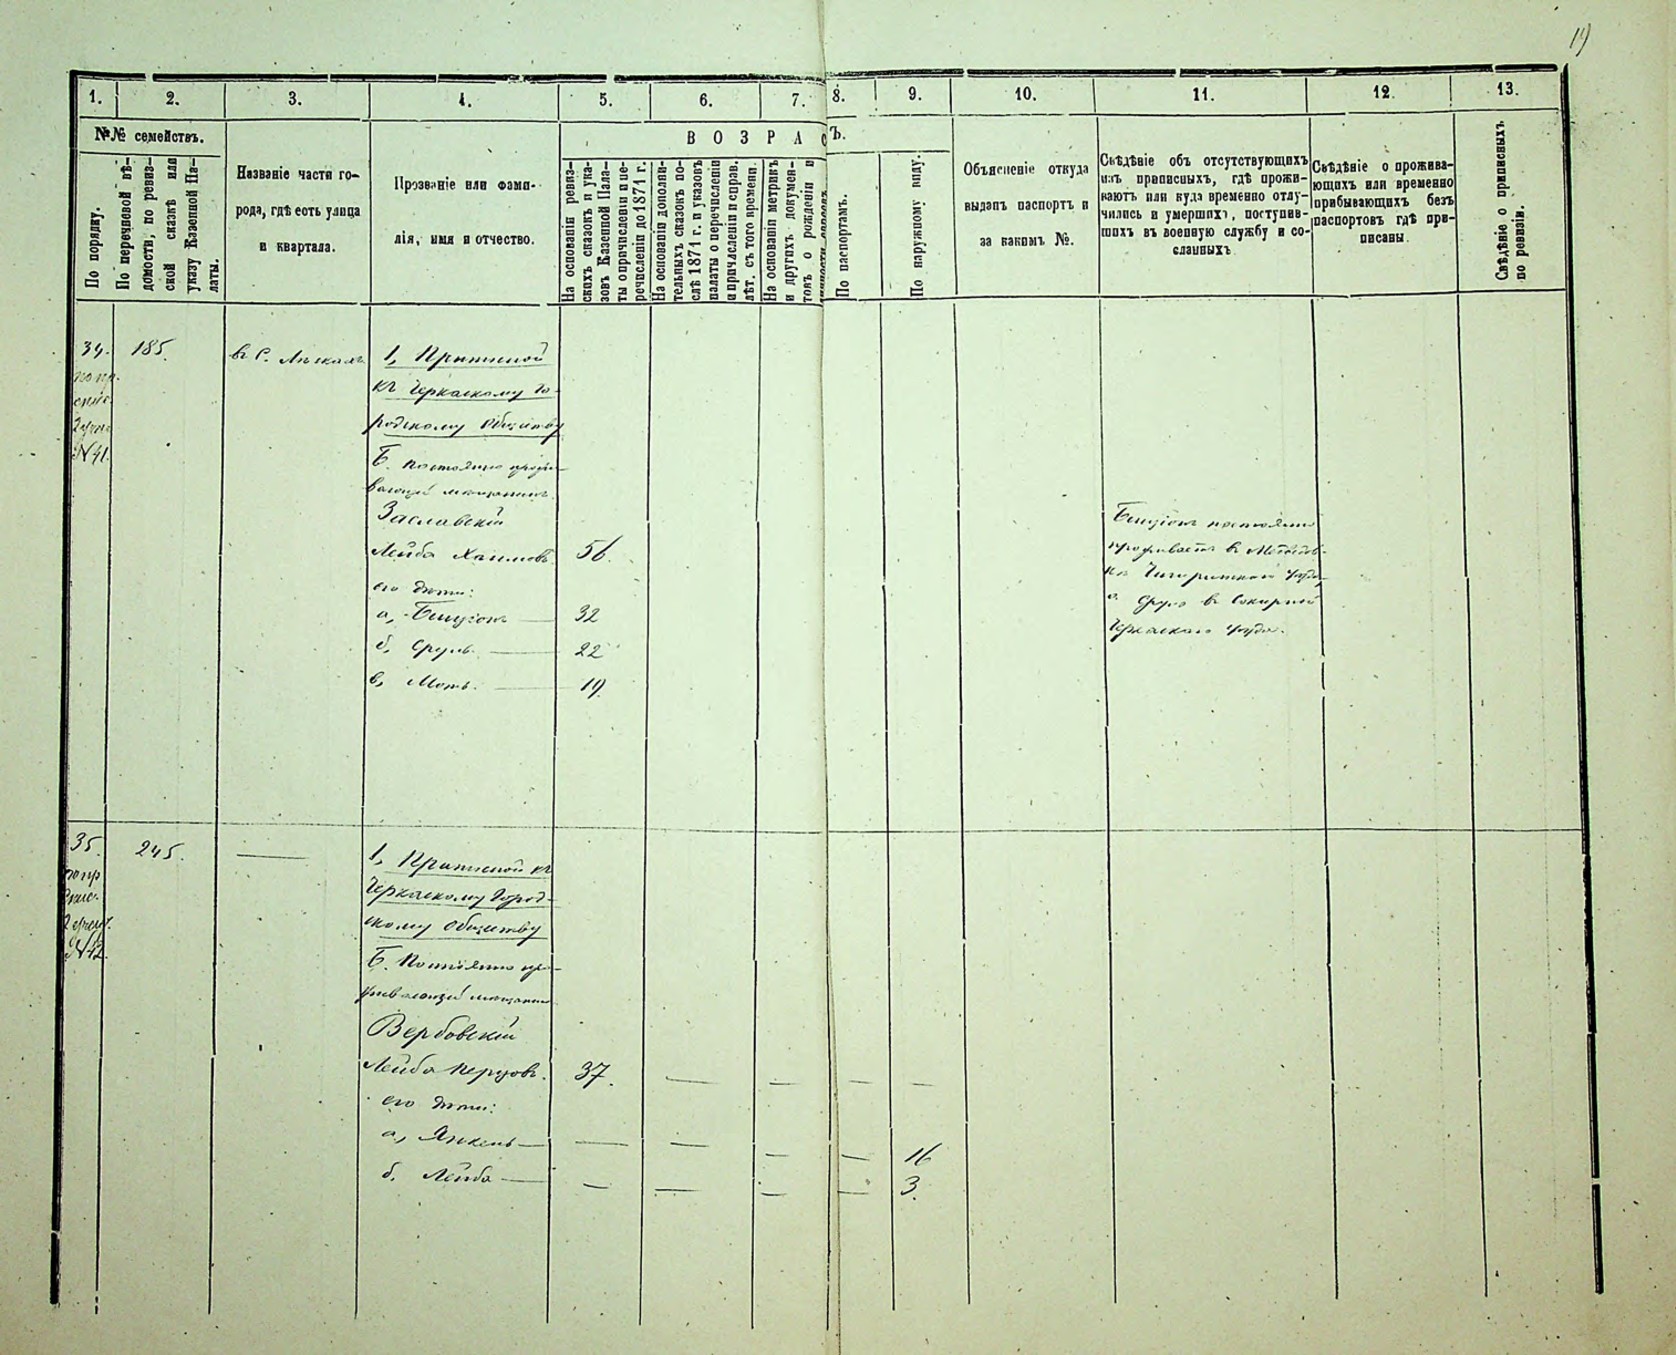 19
1.
2.
3.
4.
5.
6.
7.
8.
9.
10.
11.
12.
13.
№№ семействъ.
По порядку.
По перечневой вѣ-
домости, по ревиз-
ской сказкѣ или
указу Казенной Па-
латы.
Названіе части го-
рода, гдѣ есть улица
и квартала.
Прозваніе или фами-
лія, имя и отчество.
ВОЗРАСТЪ.
На основаніи ревиз-
скихъ сказокъ и ука-
зовъ Казенной Пала-
ты о причисленіи и пе-
речисленіи до 1871 г.
На основаніи дополни-
тельныхъ сказокъ по-
слѣ 1871 г. и указовъ
палаты о перечисленіи
и причисленіи и справ.
лѣт. съ того времени.
На основаніи метрикъ
и другихъ докумен-
товъ о рожденіи и
По паспортамъ.
По наружному виду.
Объясненіе откуда
выданъ паспортъ и
за какимъ №.
Свѣдѣніе объ отсутствующихъ
изъ приписныхъ, гдѣ прожи-
ваютъ или куда временно отлу-
чились и умершихъ, поступив-
шихъ въ военную службу и со-
сланныхъ
Свѣдѣніе о прожива-
ющихъ или временно
прибывающихъ безъ
паспортовъ гдѣ при-
писаны.
Свѣдѣніе о приписныхъ
по ревизіи.
34.
185.
въ С.
1, Приписной
къ Черкаскому Го-
родскому Обществу
Б. Постоянно прожи-
вающій мещанинъ
Заславскій
Лейба Хаимовъ 56.
его дети:
а, Бенціонъ 32
б, Сруль 22
в, Моть. 19.
№ 41.
Бенціонъ постоянно
проживаетъ въ Медведов-
ке Чигиринскаго уезда,
а Сруль въ
Черкаскаго уезда.
35.
245.
№ 42.
1, Приписной къ
Черкаскому Город-
скому Обществу
Б. Постоянно про-
живающій мещанин
Вербовскій
Лейба Перцовъ. 37.
его дети:
а, Янкель 16
б, Лейба 3.